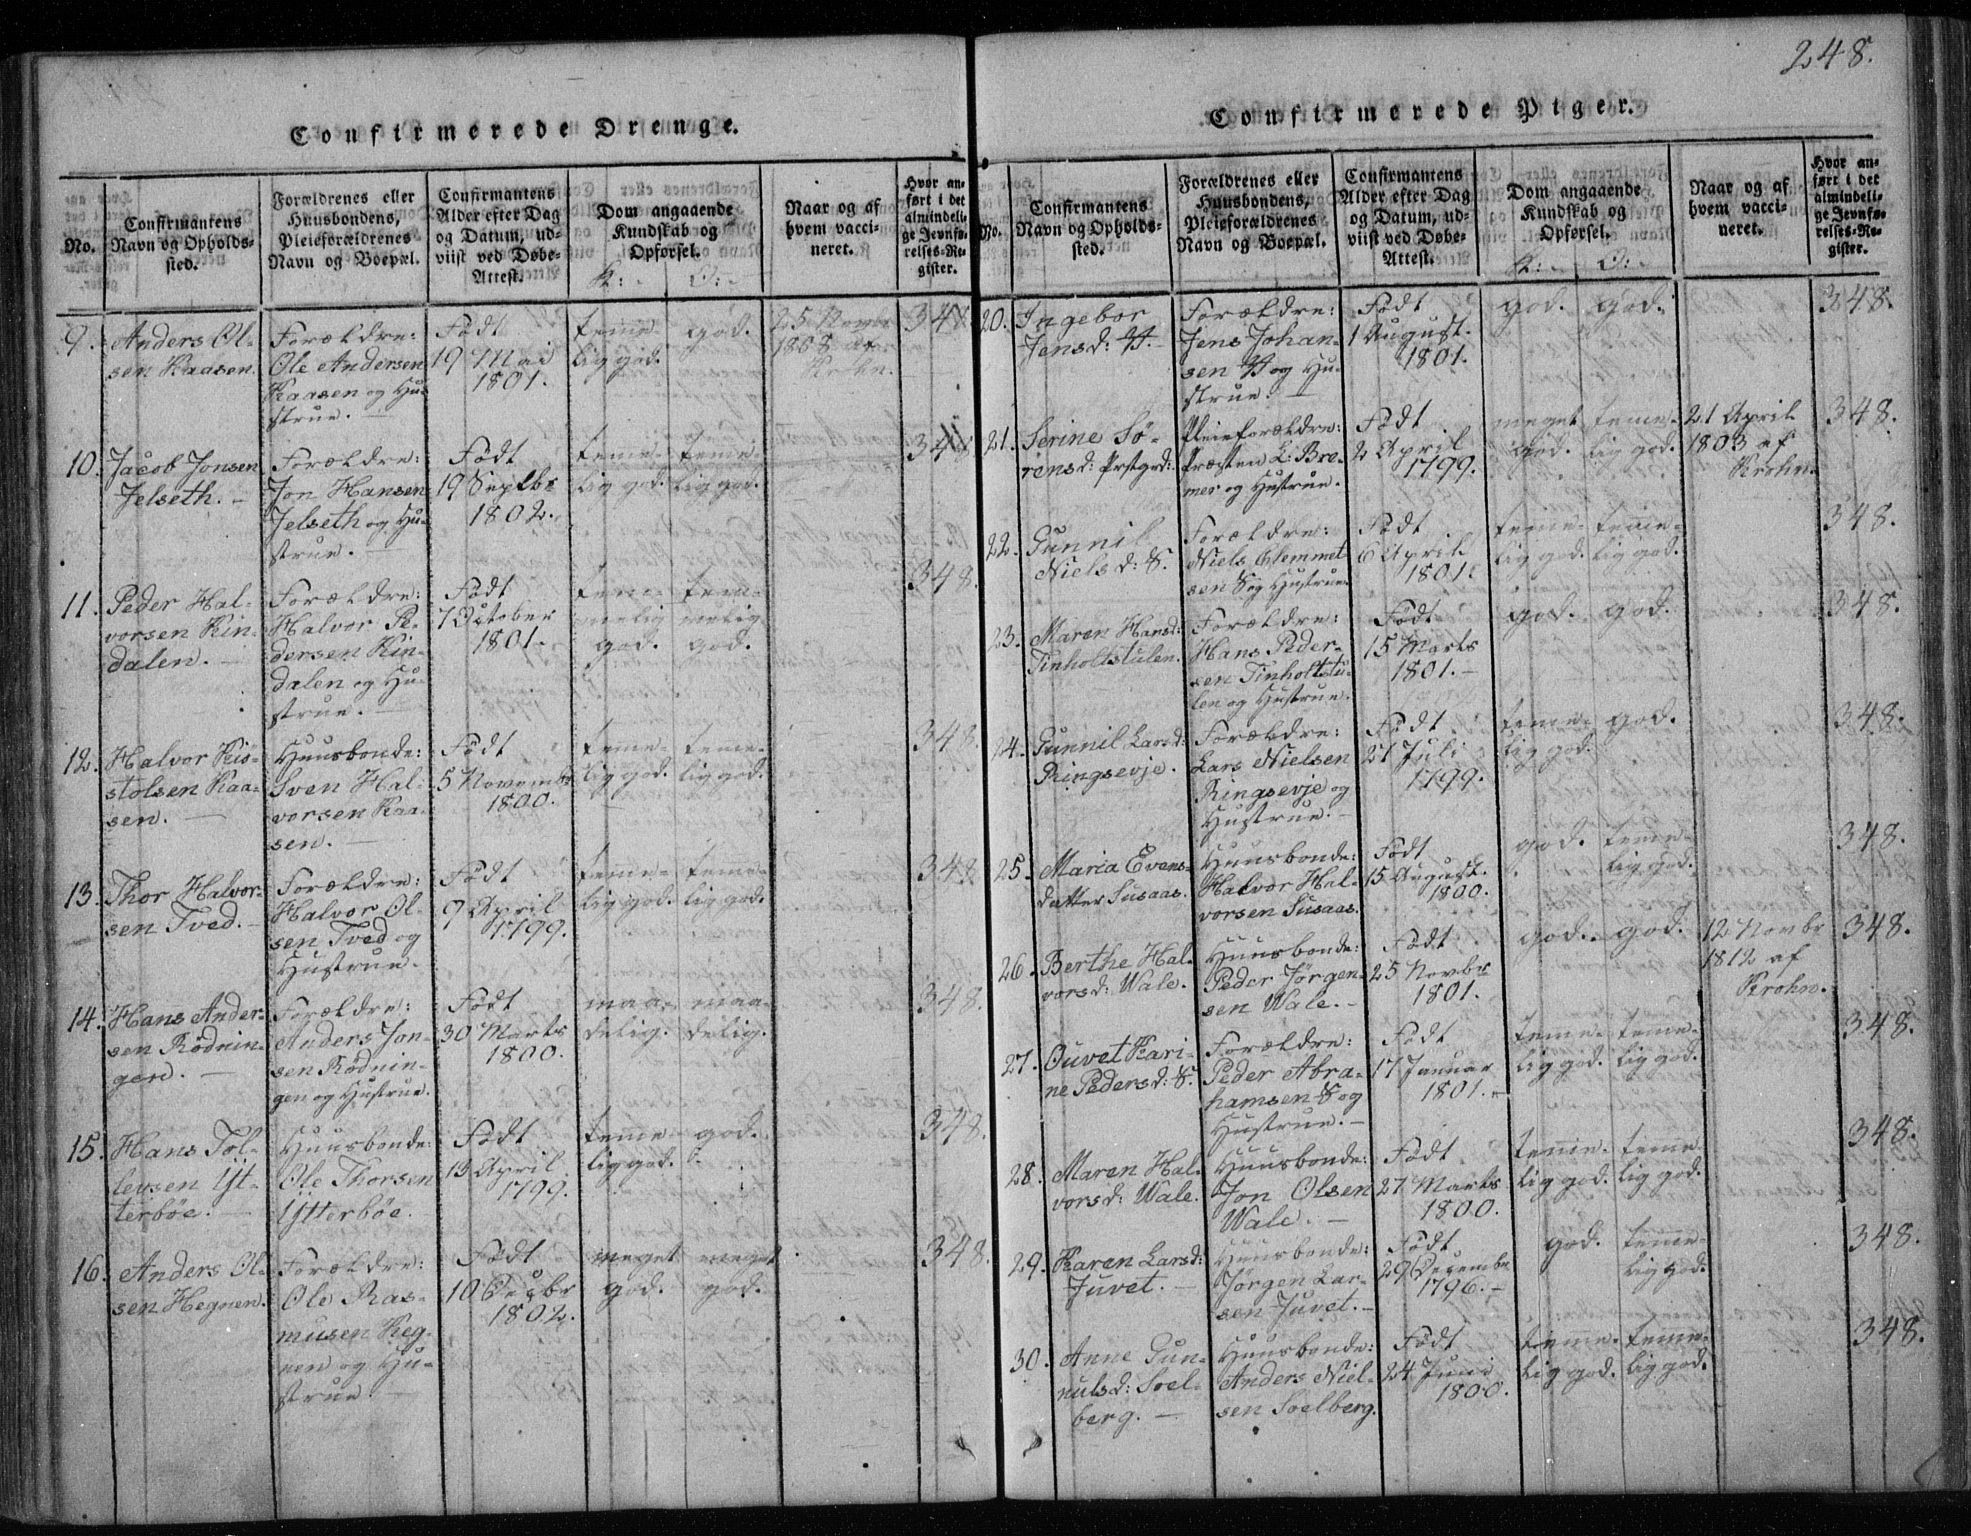 248.
Confirmerede Drenge.
No.
Confirmantens
Navn og Opholds-
sted.
Forældrenes eller
Huusbondens,
Pleieforældrenes
Navn og Boepæl.
Confirmantens
Alder efter Dag
og Datum, ud-
viist ved Døbe-
Attest.
Dom angaaende
Kundskab og
Opførsel.
K: O:
Naar og af
hvem vacci-
neret.
Hvor an-
ført i det
almindeli-
ge Jevnfø-
relses-Re-
gister.
9. Anders Ol-
sen Kaasen.
Forældre:
Ole Andersen
Kaasen og Hu-
strue.
Født
19 Mai
1801.
teme-
lig god.
god.
25 Novbr
1808 af
Krohn.
348.
10. Jacob Jonsen
Jelseth.
Forældre:
Jon Hansen
Jelseth og Hu-
strue.
Født
19 Septbr
1802.
teme-
lig god.
teme-
lig god.
348
11. Peder Hal-
vorsen Kin-
dalen.
Forældre:
Halvor Pe-
dersen Kin-
dalen og Hu-
strue.
Født
7 October
1801.
tem-
melig
god.
tem-
melig
god.
348.
12. Halvor Kis-
stolsen Kaa-
sen.
Huusbonde:
Sven Hal-
vorsen Kaa-
sen.
Født
5 Novembr
1800.
teme-
lig god.
teme-
lig god.
348.
13. Thor Halvor-
sen Tved.
Forældre:
Halvor Ol-
sen Tved og
Hustrue.
Født
9 April
1799.
teme-
lig god.
teme-
lig god.
348
14. Hans Ander-
sen Rødnin-
gen.
Forældre:
Anders Jon-
sen Rødnin-
gen og Hustrue.
Født
30 Marts
1800.
maa-
delig.
maa-
delig.
348.
15. Hans Tol-
levsen Yt-
terbøe.
Huusbonde:
Ole Thorsen
Ytterbøe.
Født
13 April
1799.
teme-
lig god.
god.
348.
16. Anders Ol-
sen Hegnen.
Forældre:
Ole Ras-
musen Heg-
nen og Hu-
strue.
Født
10 Decbr
1802.
meget
god.
meget
god.
348.
Confirmerede Piger.
No.
Confirmantens
Navn og Opholds-
sted.
Forældrenes eller
Huusbondens,
Pleieforældrenes
Navn og Boepæl.
Confirmantens
Alder efter Dag
og Datum, ud-
viist ved Døbe-
Attest.
Dom angaaende
Kundskab og
Opførsel.
K: O:
Naar og af
hvem vacci-
neret.
Hvor an-
ført i det
almindeli-
ge Jevnfø-
relses-Re-
gister.
20. Ingebor
Jensd:
Forældre:
Jens Johan-
sen og Hu-
strue.
Født
1 August.
1801.
god. god.
348.
21. Serine Sø-
rensd: Prstgrd:
Pleieforældre:
Præsten L: Bre-
mer og Hustrue.
Født
2 April
1799.
meget
god.
teme-
lig god.
21 April
1803 af
Krohn.
348.
22. Gunnil
Niels d: S.
Forældre:
Niels Clemmet
sen S og Hustrue.
Født
6 April
1801.
teme-
lig god.
teme-
lig god.
348.
23. Maren Hansd:
Tinholtstulen.
Forældre:
Hans Peder-
sen Tinholtstu-
len og Hustrue.
Født
15 Marts
1801.
god. god.
348.
24. Gunnil Larsd:
Ringsevje.
Forældre:
Lars Nielsen
Ringsevje og
Hustrue.
Født
21 Juli
1799.
teme-
lig god.
god.
348.
25. Maria Evens-
datter Susaas.
Huusbonde:
Halvor Hal-
vorsen Susaas.
Født
15 August.
1800.
god.
teme-
lig god.
348.
26. Berthe Hal-
vorsd: Wale.
Huusbonde:
Peder Jørgen-
sen Wale.
Født
25 Novbr
1801.
god. god.
12 Novbr
1812 af
Krohn.
348.
27. Ouvet Kari-
ne Pedersd: S.
Forældre:
Peder Abra-
hamsen S og
Hustrue.
Født
17 Januar
1801.
teme-
lig god.
teme-
lig god.
348.
28. Maren Hal-
vorsd: Wale.
Huusbonde:
Jon Olsen
Wale.
Født
27 Marts
1800.
teme-
lig god.
teme
lig god.
348.
29. Karen Larsd:
Juvet.
Huusbonde:
Jørgen Lar-
sen Juvet.
Født
29 Decembr
1796.
god.
teme-
lig god.
348.
30. Anne Gun-
nulsd: Soel-
berg.
Huusbonde:
Anders Niel-
sen Soelberg.
Født
24 Juni
1800.
teme-
lig god.
teme-
lig god.
348.